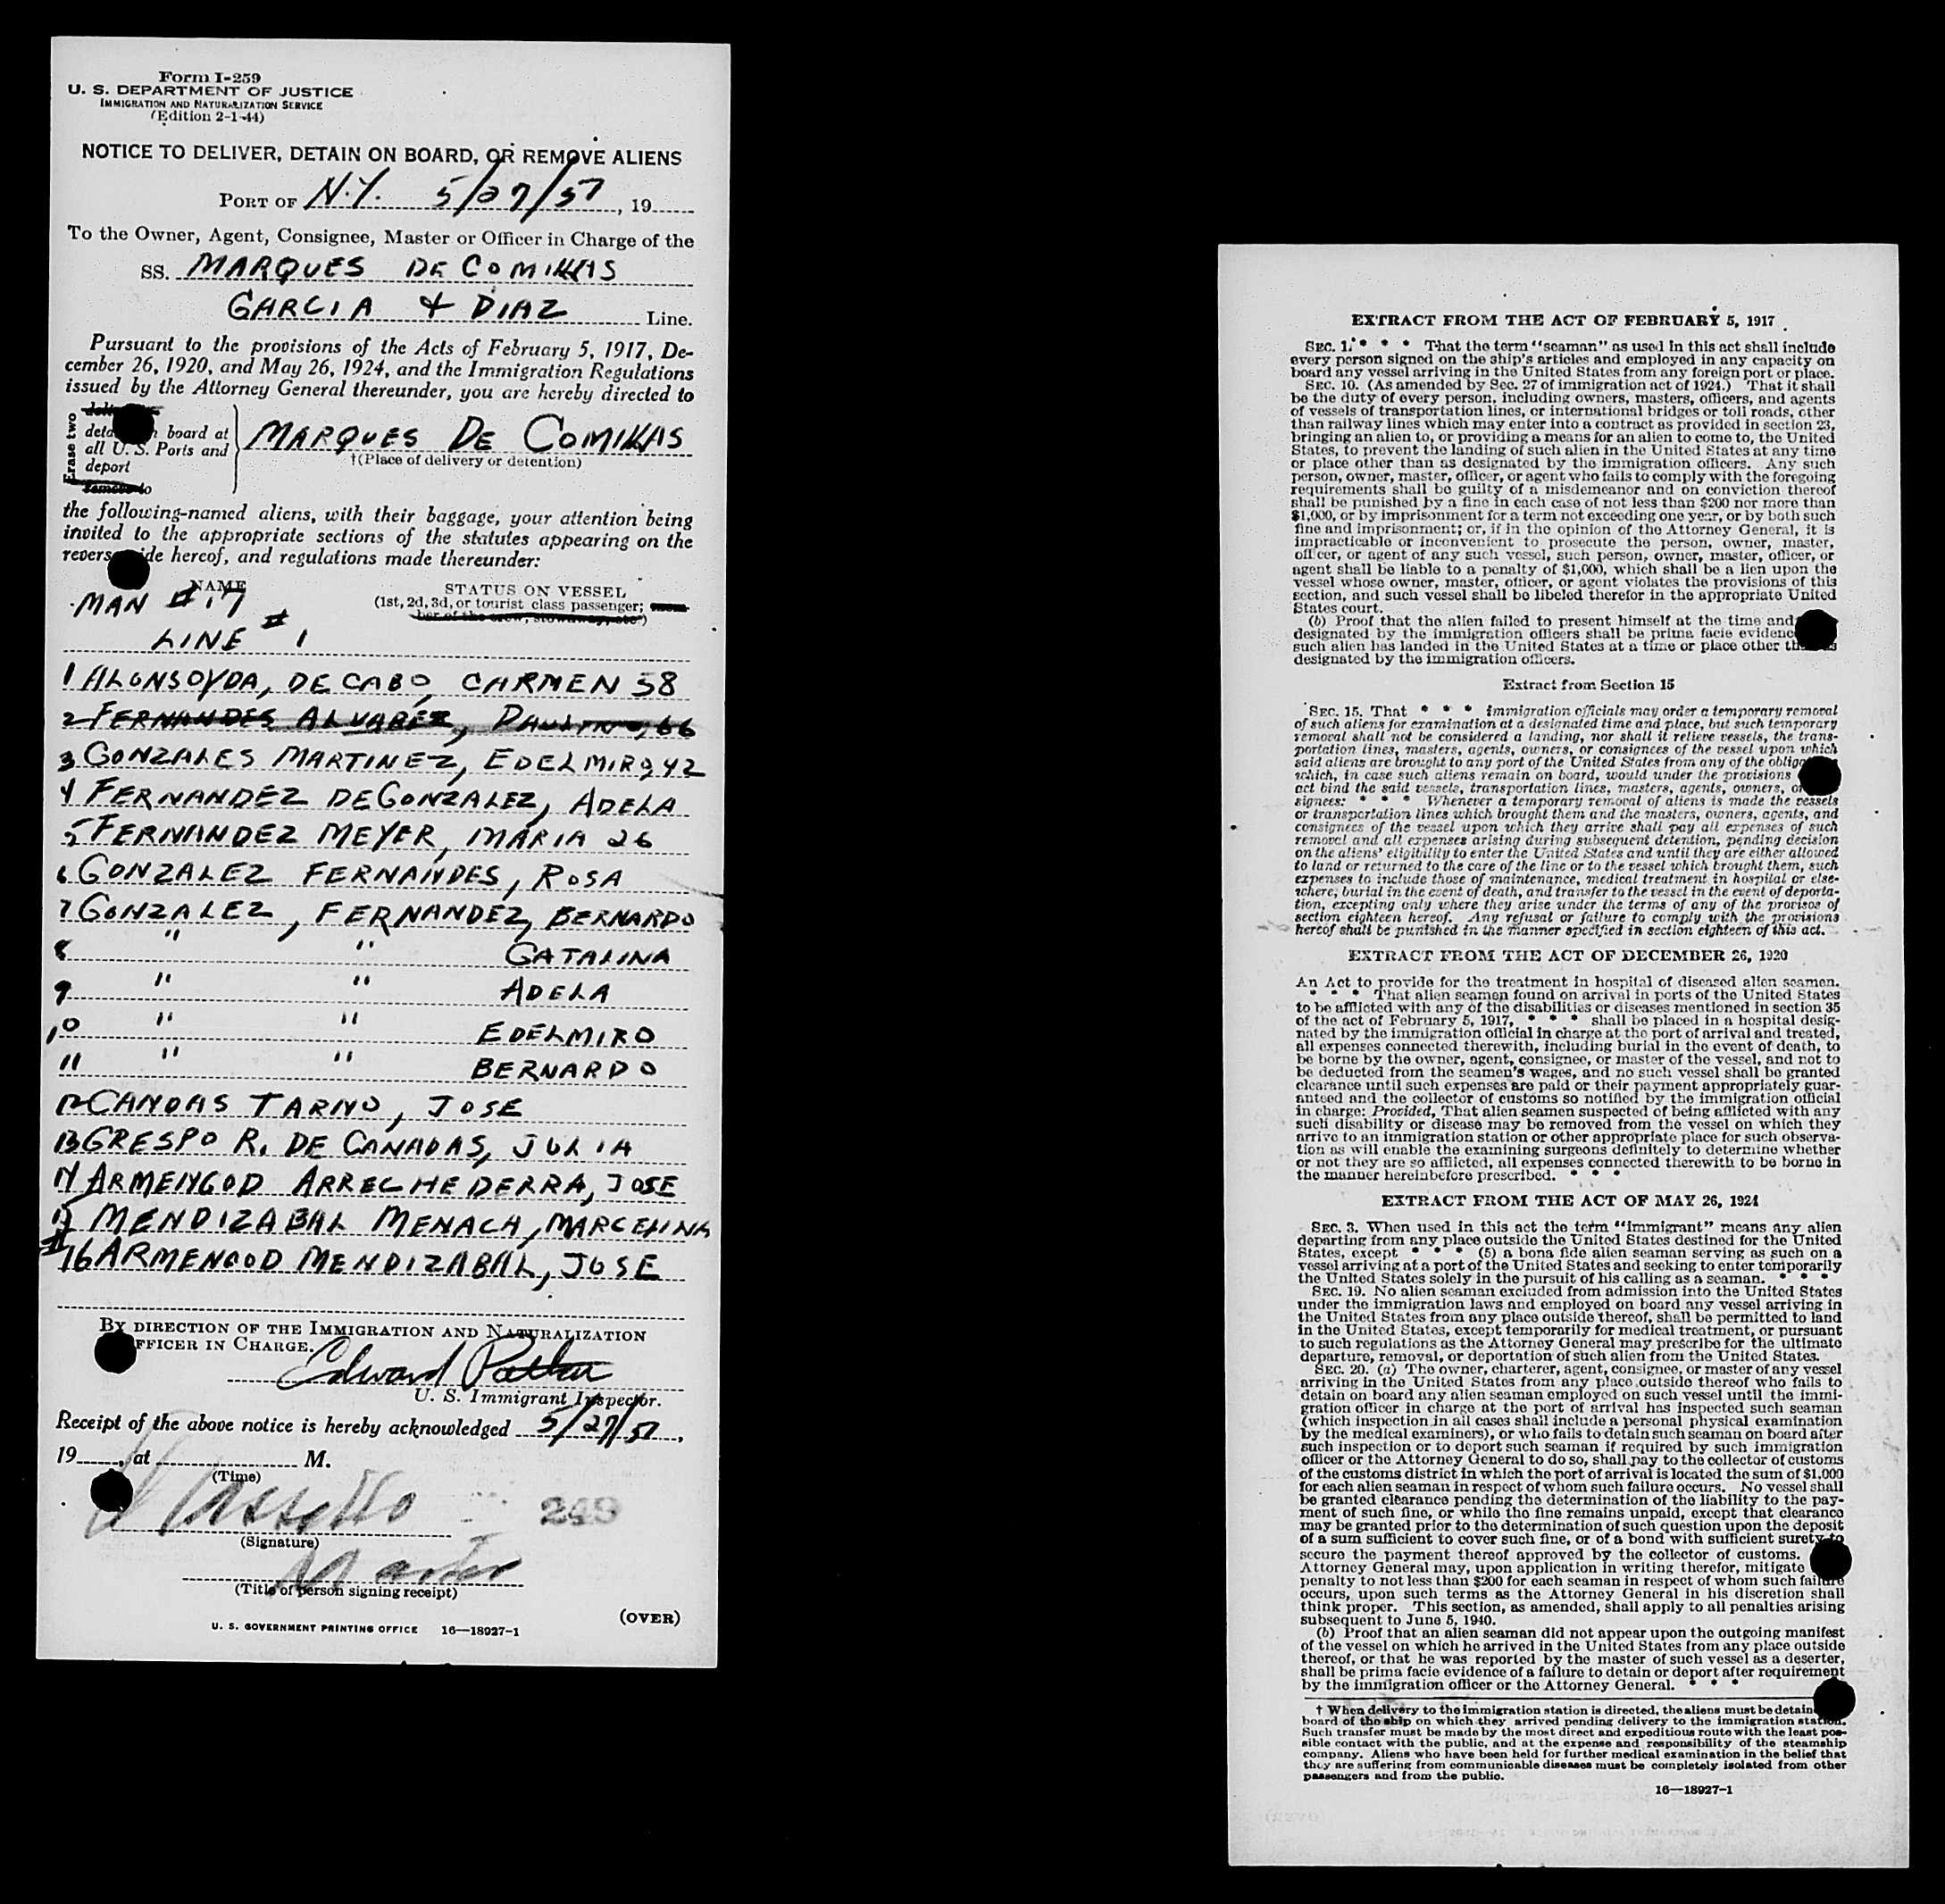 Form I-259
U. S. DEPARTMENT OF JUSTICE
IMMIGRATION AND NATURALIZATION SERVICE
(Edition 2-1-44)
NOTICE TO DELIVER, DETAIN ON BOARD, OR REMOVE ALIENS
PORT OF N.Y. 5/27/51, 19
To the Owner, Agent, Consignee, Master or Officer in Charge of the
SS. MARQUES DE COMILLAS
GARCIA & DIAZ Line.
Pursuant to the provisions of the Acts of February 5, 1917, De-
cember 26, 1920, and May 26, 1924, and the Immigration Regulations
issued by the Attorney General thereunder, you are hereby directed to
Erase two
board at
all U. S. Ports and
deport
remove to
MARQUES DE COMILLAS
†(Place of delivery or detention)
the following-named aliens, with their baggage, your attention being
invited to the appropriate sections of the statutes appearing on the
reverse side hereof, and regulations made thereunder:
NAME
STATUS ON VESSEL
(1st, 2d, 3d, or tourist class passenger; mem-
ber of the crew, stowaway, etc.)
MAN #17
LINE #1
1 ALONSOYDA, DE CABO, CARMEN 58
2 FERNANDES ALVAREZ, PAULINO, 66
3 GONZALES MARTINEZ, EDELMIRO 42
4 FERNANDEZ DE GONZALEZ, ADELA
5 FERNANDEZ MEYER, MARIA 26
6 GONZALEZ FERNANDES, ROSA
7 GONZALEZ, FERNANDEZ, BERNARDO
8 " " CATALINA
9 " " ADELA
10 " " EDELMIRO
11 " " BERNARDO
12 CANDAS TARNO, JOSE
13 CRESPO R. DE CANADAS, JULIA
14 ARMENGOD ARRECHEDERRA, JOSE
15 MENDIZABAL MENACA, MARCELINA
#16 ARMENGOD MENDIZABAL, JOSE
BY DIRECTION OF THE IMMIGRATION AND NATURALIZATION
OFFICER IN CHARGE.
Edward
U. S. Immigrant Inspector.
Receipt of the above notice is hereby acknowledged 5/27/51,
19, at M.
(Time)
249
(Signature)
Master
(Title of person signing receipt)
(OVER)
U. S. GOVERNMENT PRINTING OFFICE 16—18927-1
EXTRACT FROM THE ACT OF FEBRUARY 5, 1917
SEC. 1. * * * That the term "seaman" as used in this act shall include
every person signed on the ship's articles and employed in any capacity on
board any vessel arriving in the United States from any foreign port or place.
SEC. 10. (As amended by Sec. 27 of immigration act of 1924.) That it shall
be the duty of every person, including owners, masters, officers, and agents
of vessels of transportation lines, or international bridges or toll roads, other
than railway lines which may enter into a contract as provided in section 23,
bringing an alien to, or providing a means for an alien to come to, the United
States, to prevent the landing of such alien in the United States at any time
or place other than as designated by the immigration officers. Any such
person, owner, master, officer, or agent who fails to comply with the foregoing
requirements shall be guilty of a misdemeanor and on conviction thereof
shall be punished by a fine in each case of not less than $200 nor more than
$1,000, or by imprisonment for a term not exceeding one year, or by both such
fine and imprisonment; or, if in the opinion of the Attorney General, it is
impracticable or inconvenient to prosecute the person, owner, master,
officer, or agent of any such vessel, such person, owner, master, officer, or
agent shall be liable to a penalty of $1,000, which shall be a lien upon the
vessel whose owner, master, officer, or agent violates the provisions of this
section, and such vessel shall be libeled therefor in the appropriate United
States court.
(b) Proof that the alien failed to present himself at the time and
designated by the immigration officers shall be prima facie evidence
such alien has landed in the United States at a time or place other than as
designated by the immigration officers.
Extract from Section 15
SEC. 15. That * * * immigration officials may order a temporary removal
of such aliens for examination at a designated time and place, but such temporary
removal shall not be considered a landing, nor shall it relieve vessels, the trans-
portation lines, masters, agents, owners, or consignees of the vessel upon which
said aliens are brought to any port of the United States from any of the obligations
which, in case such aliens remain on board, would under the provisions
act bind the said vessels, transportation lines, masters, agents, owners, or
signees: * * * Whenever a temporary removal of aliens is made the vessels
or transportation lines which brought them and the masters, owners, agents, and
consignees of the vessel upon which they arrive shall pay all expenses of such
removal and all expenses arising during subsequent detention, pending decision
on the aliens' eligibility to enter the United States and until they are either allowed
to land or returned to the care of the line or to the vessel which brought them, such
expenses to include those of maintenance, medical treatment in hospital or else-
where, burial in the event of death, and transfer to the vessel in the event of deporta-
tion, excepting only where they arise under the terms of any of the provisos of
section eighteen hereof. Any refusal or failure to comply with the provisions
hereof shall be punished in the manner specified in section eighteen of this act.
EXTRACT FROM THE ACT OF DECEMBER 26, 1920
An Act to provide for the treatment in hospital of diseased alien seamen.
* * * That alien seamen found on arrival in ports of the United States
to be afflicted with any of the disabilities or diseases mentioned in section 35
of the act of February 5, 1917, * * * shall be placed in a hospital desig-
nated by the immigration official in charge at the port of arrival and treated,
all expenses connected therewith, including burial in the event of death, to
be borne by the owner, agent, consignee, or master of the vessel, and not to
be deducted from the seamen's wages, and no such vessel shall be granted
clearance until such expenses are paid or their payment appropriately guar-
anteed and the collector of customs so notified by the immigration official
in charge: Provided, That alien seamen suspected of being afflicted with any
such disability or disease may be removed from the vessel on which they
arrive to an immigration station or other appropriate place for such observa-
tion as will enable the examining surgeons definitely to determine whether
or not they are so afflicted, all expenses connected therewith to be borne in
the manner hereinbefore prescribed. * * *
EXTRACT FROM THE ACT OF MAY 26, 1924
SEC. 3. When used in this act the term "immigrant" means any alien
departing from any place outside the United States destined for the United
States, except * * * (5) a bona fide alien seaman serving as such on a
vessel arriving at a port of the United States and seeking to enter temporarily
the United States solely in the pursuit of his calling as a seaman. * * *
SEC. 19. No alien seaman excluded from admission into the United States
under the immigration laws and employed on board any vessel arriving in
the United States from any place outside thereof, shall be permitted to land
in the United States, except temporarily for medical treatment, or pursuant
to such regulations as the Attorney General may prescribe for the ultimate
departure, removal, or deportation of such alien from the United States.
SEC. 20. (a) The owner, charterer, agent, consignee, or master of any vessel
arriving in the United States from any place outside thereof who fails to
detain on board any alien seaman employed on such vessel until the immi-
gration officer in charge at the port of arrival has inspected such seaman
(which inspection in all cases shall include a personal physical examination
by the medical examiners), or who fails to detain such seaman on board after
such inspection or to deport such seaman if required by such immigration
officer or the Attorney General to do so, shall pay to the collector of customs
of the customs district in which the port of arrival is located the sum of $1,000
for each alien seaman in respect of whom such failure occurs. No vessel shall
be granted clearance pending the determination of the liability to the pay-
ment of such fine, or while the fine remains unpaid, except that clearance
may be granted prior to the determination of such question upon the deposit
of a sum sufficient to cover such fine, or of a bond with sufficient surety to
secure the payment thereof approved by the collector of customs.
Attorney General may, upon application in writing therefor, mitigate
penalty to not less than $200 for each seaman in respect of whom such failure
occurs, upon such terms as the Attorney General in his discretion shall
think proper. This section, as amended, shall apply to all penalties arising
subsequent to June 5, 1940.
(b) Proof that an alien seaman did not appear upon the outgoing manifest
of the vessel on which he arrived in the United States from any place outside
thereof, or that he was reported by the master of such vessel as a deserter,
shall be prima facie evidence of a failure to detain or deport after requirement
by the immigration officer or the Attorney General. * * *
† When delivery to the immigration station is directed, the aliens must be detained
board of the ship on which they arrived pending delivery to the immigration station.
Such transfer must be made by the most direct and expeditious route with the least pos-
sible contact with the public, and at the expense and responsibility of the steamship
company. Aliens who have been held for further medical examination in the belief that
they are suffering from communicable diseases must be completely isolated from other
passengers and from the public.
16—18927-1